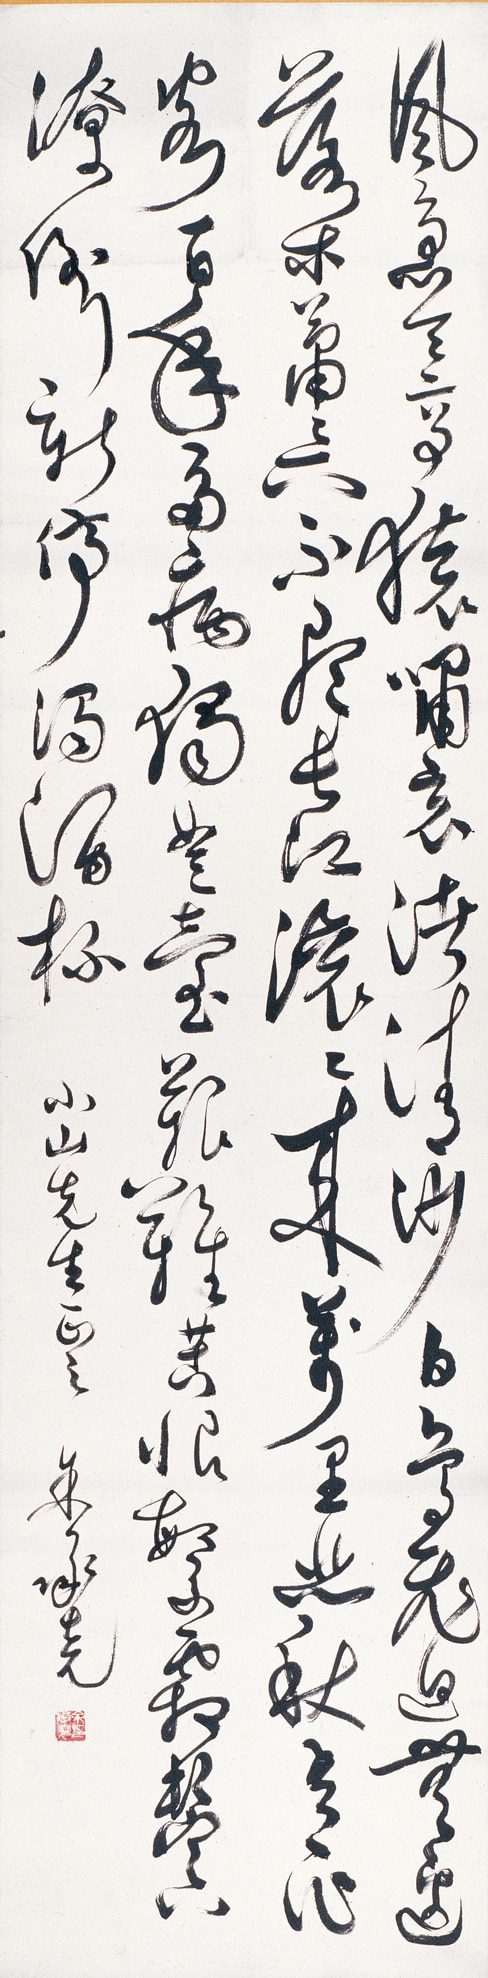 風急天高猿嘯哀渚清沙白鳥飛迴無邊
落木蕭〻下不盡長江滾〻來萬里悲秋常作
客百年多病獨登臺艱難苦恨繁霜鬢
潦倒新停濁酒杯 小山先生正之 朱